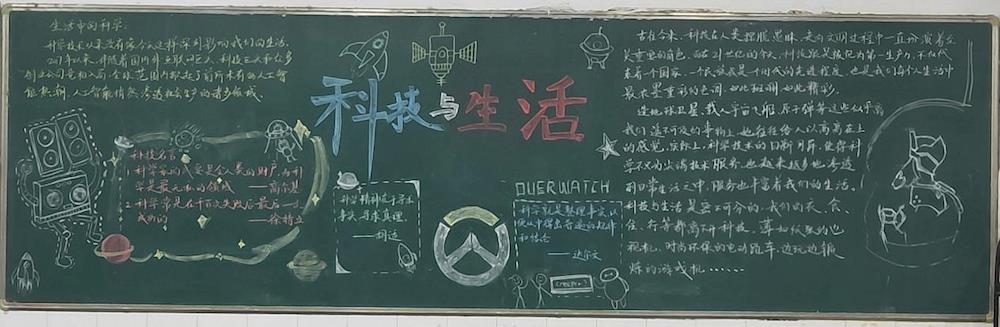 生活中的科学:
科学技术从来没有像今天这样深刻影响我们的生活,
2017年以来,伴随着国内外互联网巨人、科技巨头和众多
创业公司竞相入局,全球范围内掀起了前所未有的人工智
能热潮,人工智能悄然渗透社会生产的诸多领域。
科技与生活
科技名言
1.科学家的成果是全人类的财产,而科
学是最无私的领域
——高尔基
2.科学常是在千百次失败后最后一次
成功的
——徐特立
科学精神在于寻求
事实,寻求真理。
——胡适
OVERWATCH
科学就是整理事实,以
便从中得出普遍的规律
和结论
——达尔文
古往今来,科技在人类摆脱愚昧、走向文明过程中一直扮演着至
关重要的角色。而在21世纪的今天,科技更是被视为第一生产力,不仅代
表着一个国家、一个民族甚至一个时代的先进程度,也是我们每个人生活中
最浓墨重彩的色调,如此斑斓,也如此精彩。
这地球卫星、载人宇宙飞船、原子弹等这些似乎离
我们遥不可及的事物上,也往往给人以高高在上
的感觉,实际上,科学技术的日新月异,使得科
学不仅为尖端技术服务,也越来越多地渗透
到日常生活之中,服务也丰富着我们的生活。
科技与生活是密不可分的,我们的衣、食、
住、行等都离不开科技。薄如纸张的电
视机,时尚环保的电动踏车,边玩边锻
炼的游戏机……